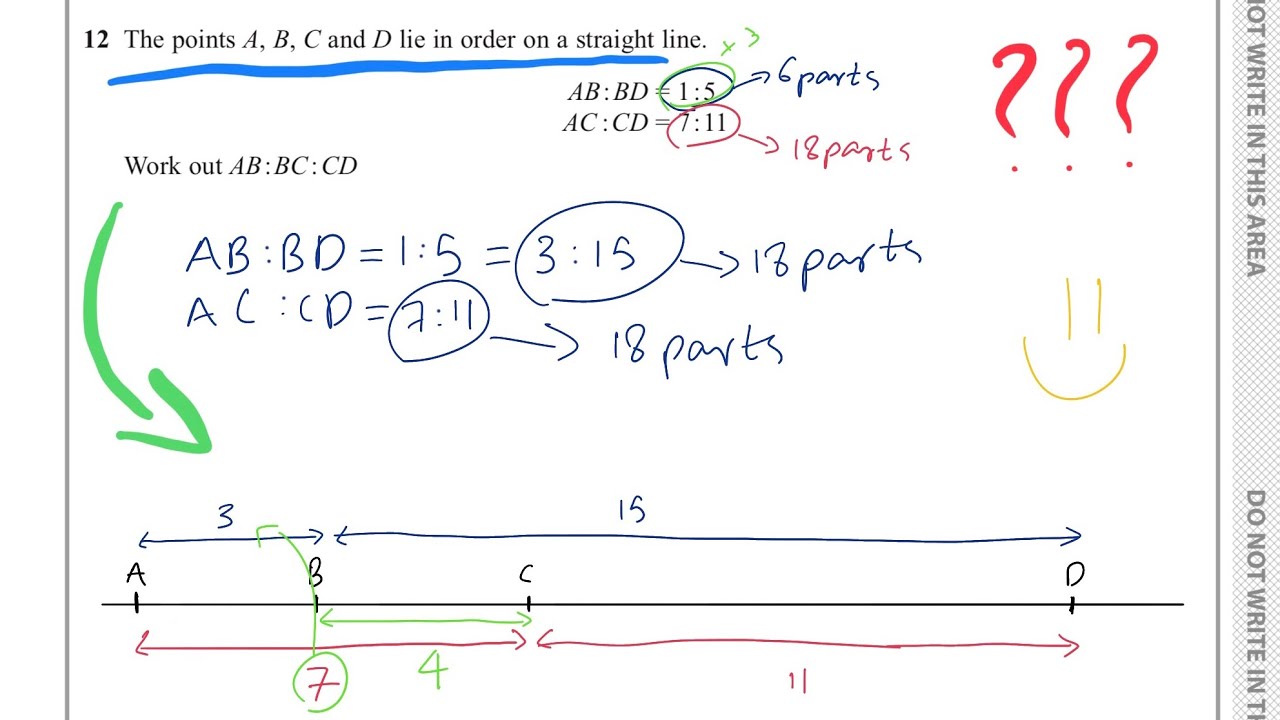 12 The points A, B, C and D lie in order on a straight line.
× 3
AB : BD = 1 : 5 → 6 parts
AC : CD = 7 : 11 → 18 parts
Work out AB : BC : CD
? ? ?
AB : BD = 1 : 5 = 3 : 15 → 18 parts
AC : CD = 7 : 11 → 18 parts
3 15
A B C D
7 4 11
NOT WRITE IN THIS AREA
DO NOT WRITE IN TH